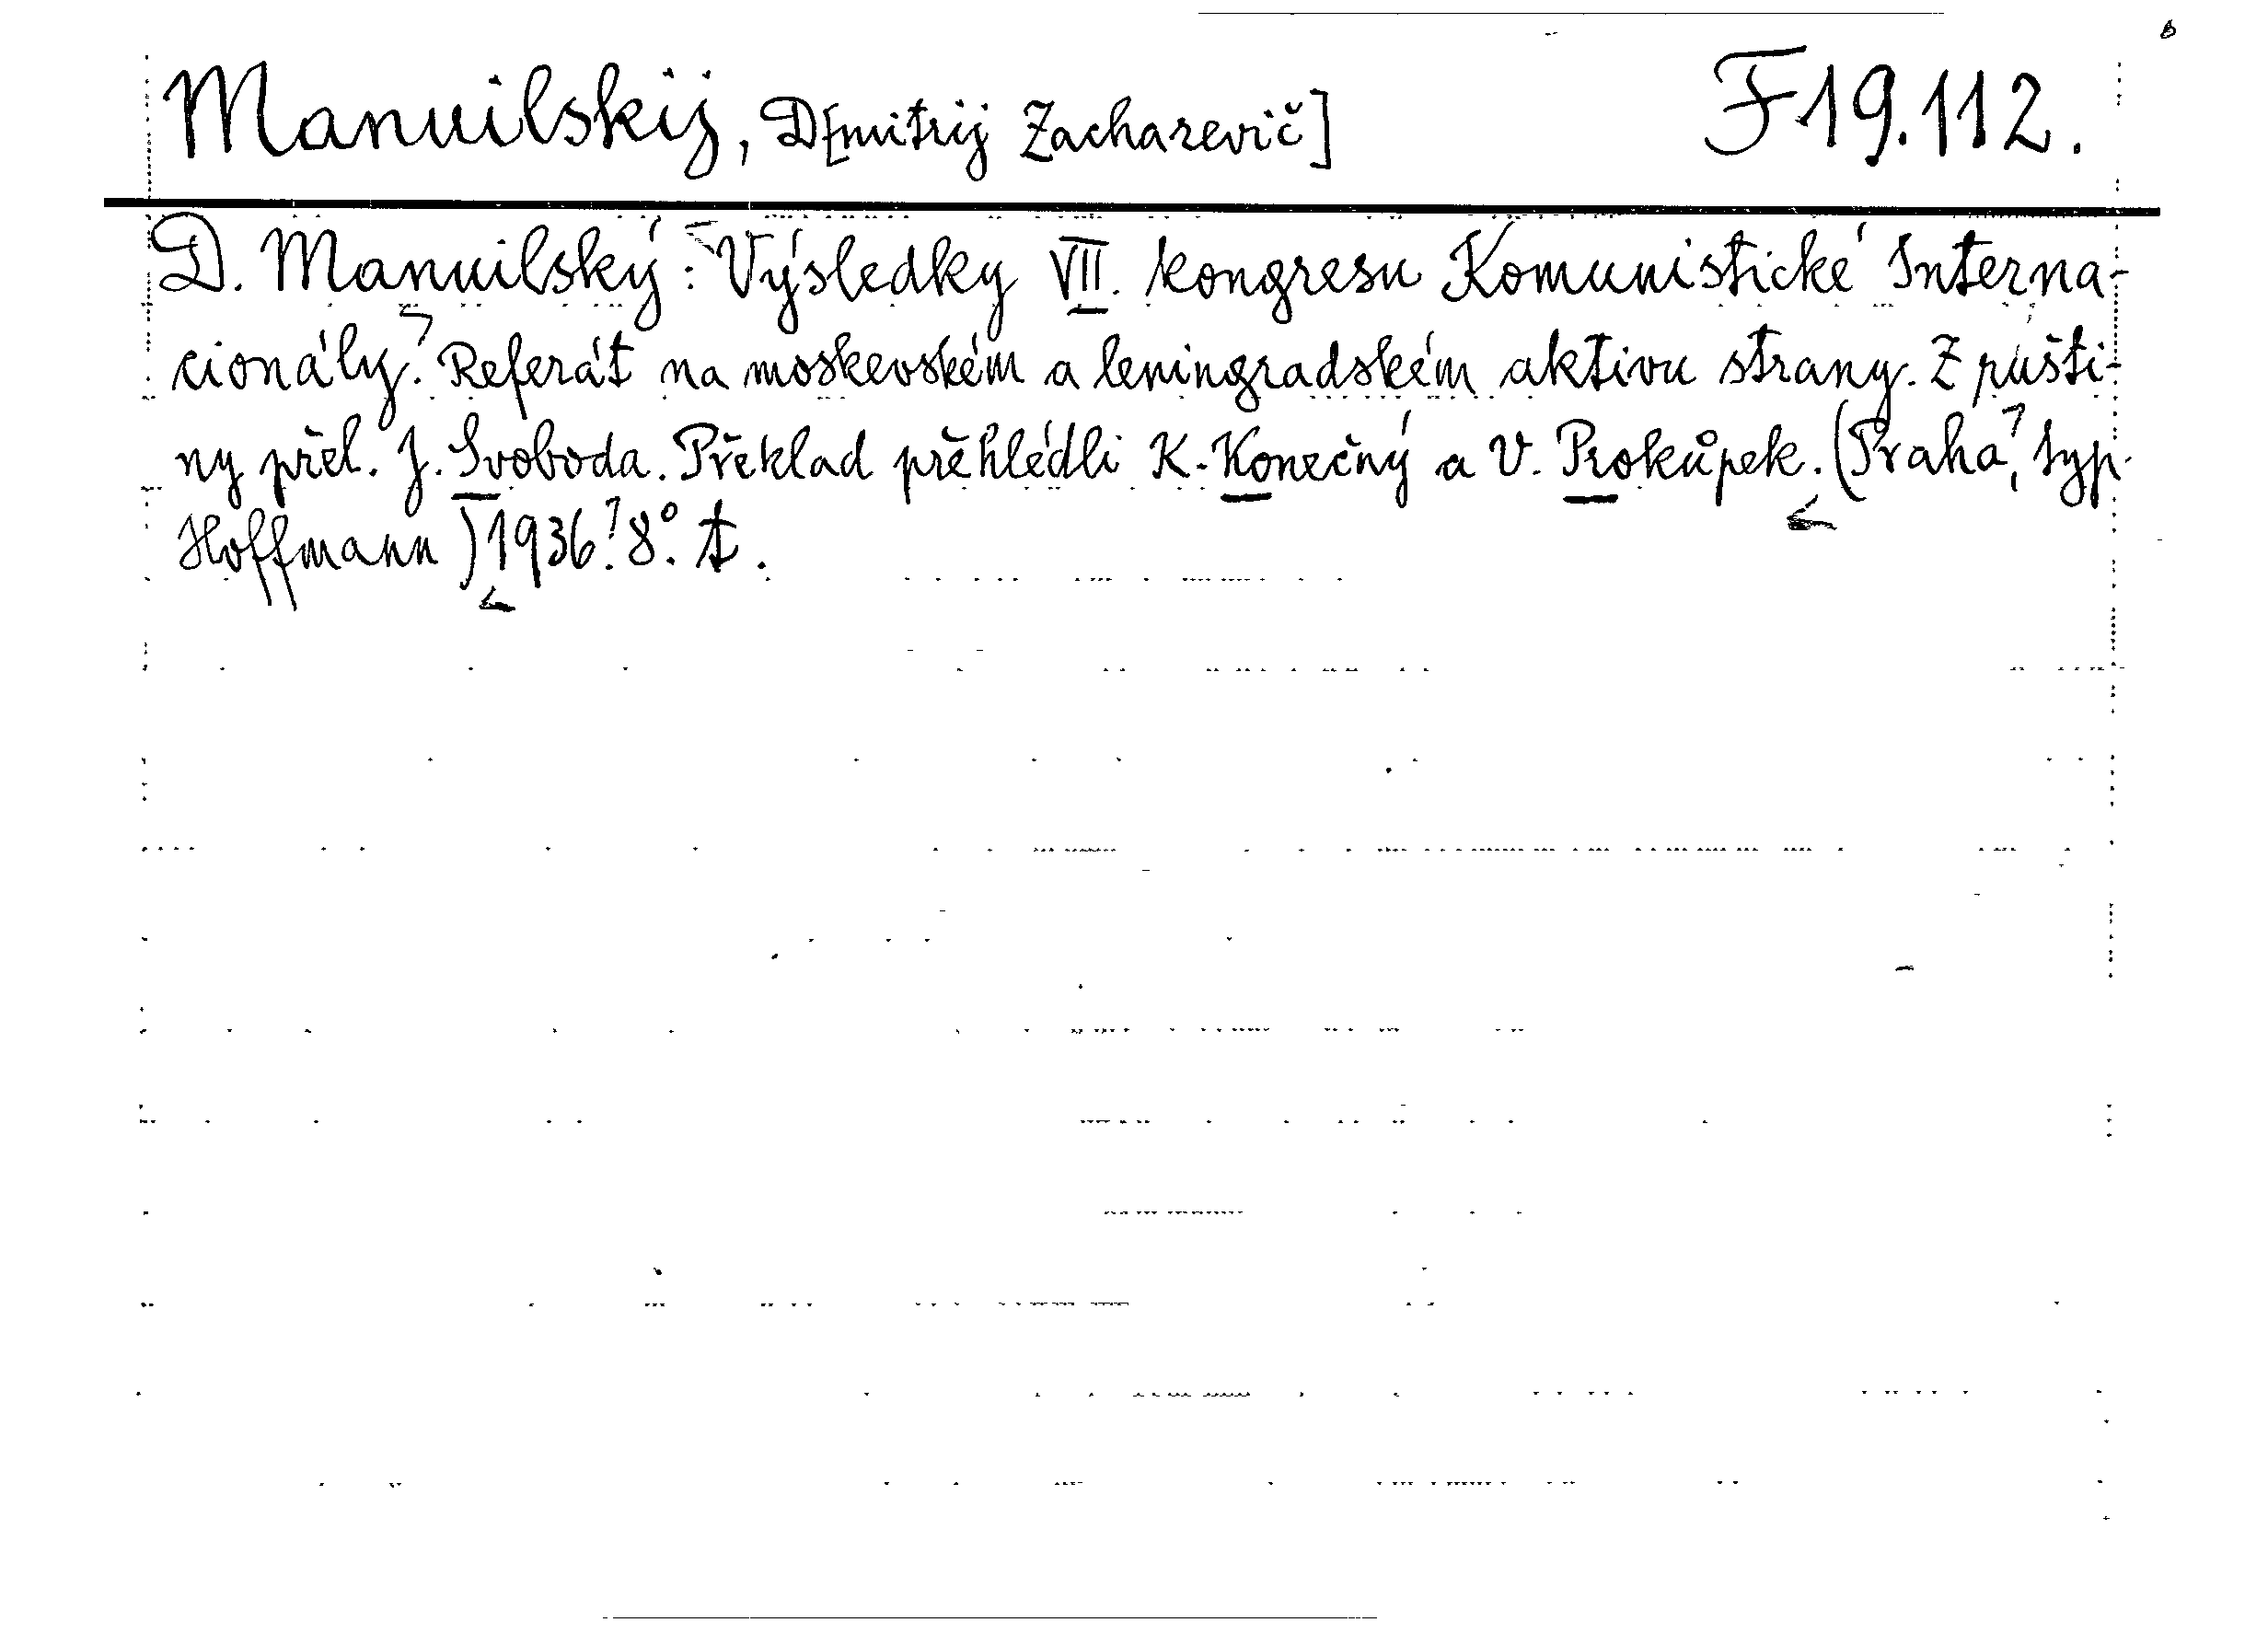 Manuilskij, D[mitrij Zacharevič] F 19.112.
D. Manuilský: Výsledky VII. kongresu Komunistické Interna-
cionály. Referát na moskevském a leningradském aktivu strany. Z rušti-
ny přel. J. Svoboda. Překlad přehlédli K. Konečný a V. Prokůpek. (Praha, typ.
Hoffmann) 1936. 8°.